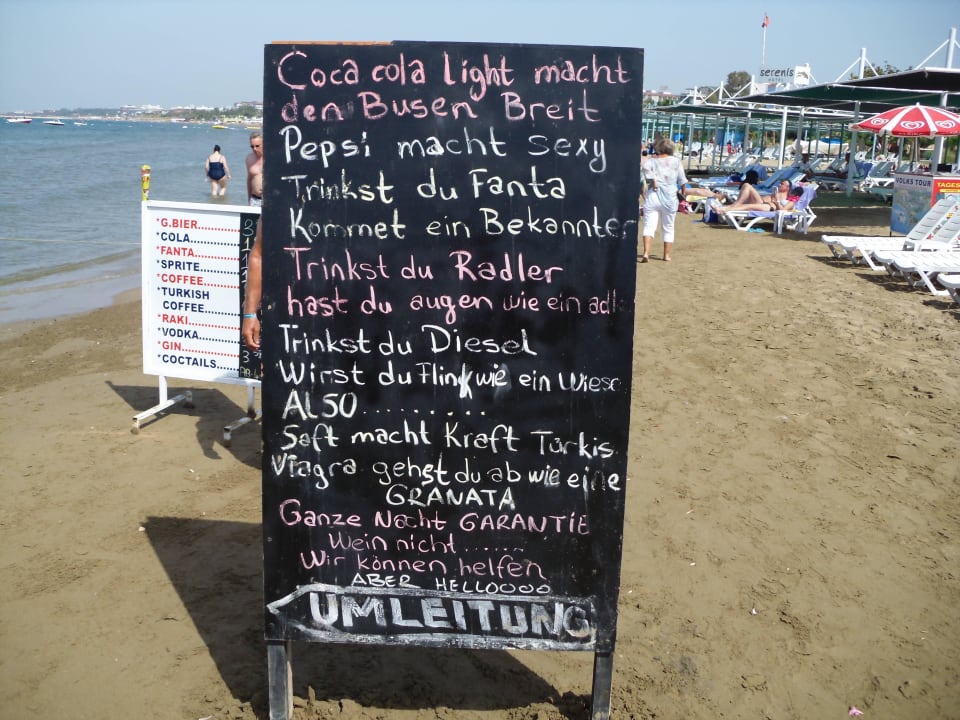 Coca cola light macht
den Busen Breit
Pepsi macht sexy
Trinkst du Fanta
Kommet ein Bekannter
Trinkst du Radler
hast du augen wie ein adle
Trinkst du Diesel
Wirst du Flink wie ein Wiese
ALSO..........
Saft macht Kraft Türkis.
Viagra gehst du ab wie eine
GRANATA
Ganze Nacht GARANTIE
Wein nicht......
Wir können helfen
ABER HELLOOOO
UMLEITUNG
*G.BIER
*COLA
*FANTA
*SPRITE
*COFFEE
*TURKISH
COFFEE
*RAKI
*VODKA
*GIN
*COCTAILS
serenis
HOTEL
VOLKS TOUR
TAGES